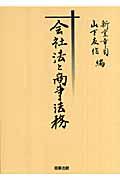 新堂幸司
山下友信
編
会社法と商事法務
商事法務